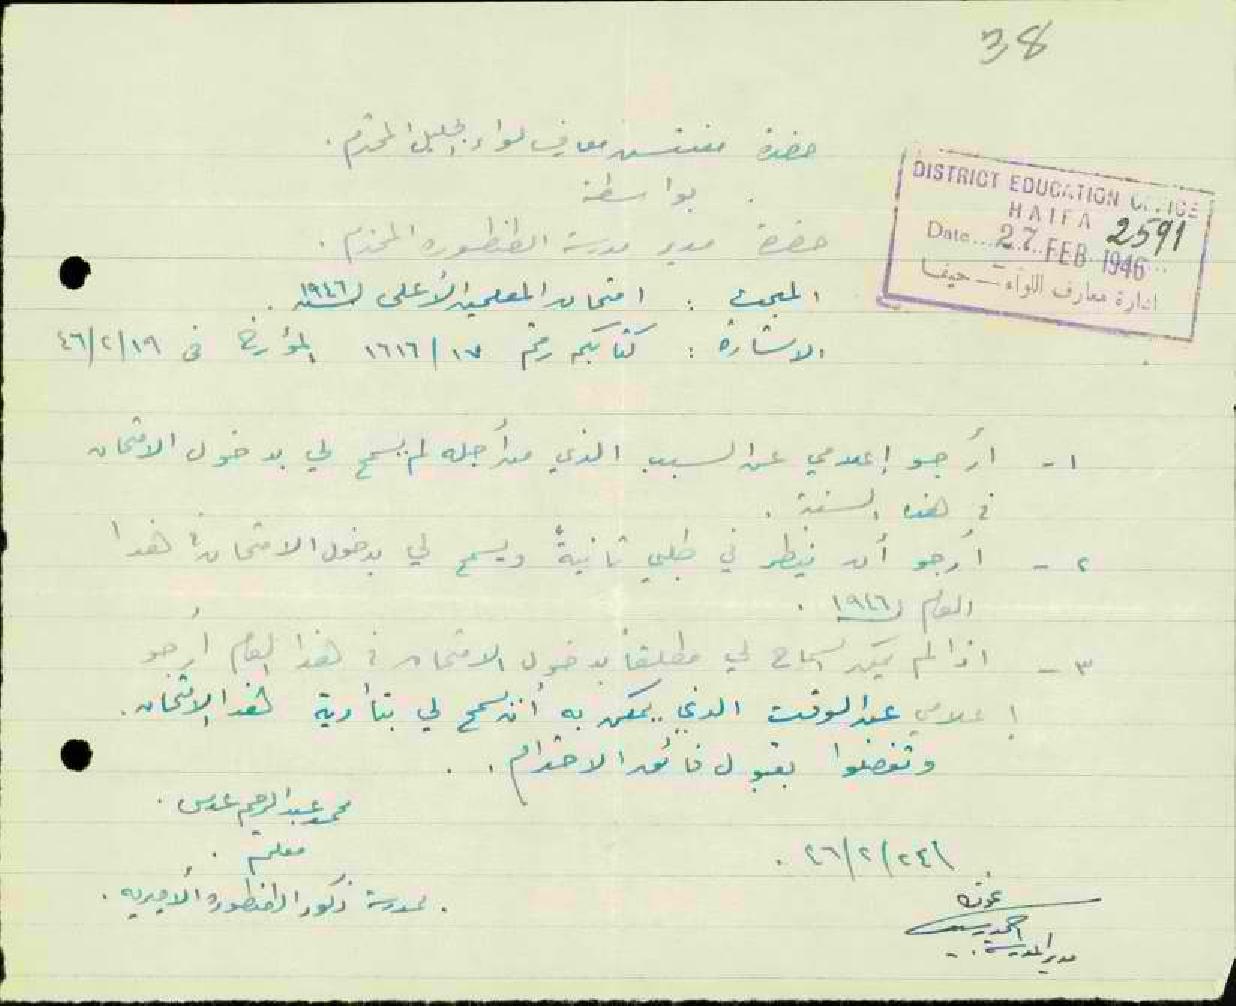 38
حضرة مفتش معارف لواء الجليل المحترم.
بواسطة
حضرة مدير مدرسة الطنطوره المحترم.
DISTRICT EDUCATION OFFICE
HAIFA
2591
Date... 27 FEB 1946
ادارة معارف اللواء - حيفا
المبحث : امتحان المعلمين الأعلى لسنة ١٩٤٦.
الاشارة : كتابكم رقم ١٧/١٦١٦ المؤرخ في ٤٦/٢/١٩
١- أرجو إعلامي عن السبب الذي من أجله لم يسمح لي بدخول الامتحان
في هذه السنة.
٢- أرجو أن ينظر في طلبي ثانيةً ويسمح لي بدخول الامتحان في هذا
العام ١٩٤٦.
٣- اذا لم يكن السماح لي مطلقاً بدخول الامتحان في هذا العام أرجو
إعلامي عن الوقت الذي يمكن به أن يسمح لي بتأدية هذا الامتحان.
وتفضلوا بقبول فائق الاحترام.
محمد عبد الرحيم عدس.
معلم.
لمدرسة ذكور الطنطوره الأميريه.
٤٦/٢/٢٤.
مدير المدرسة